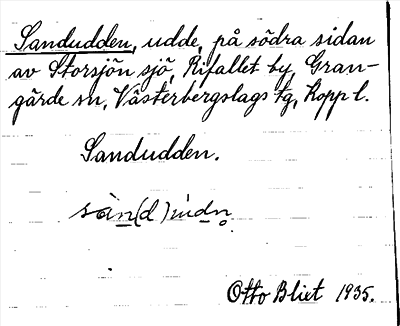 Sandudden, udde, på södra sidan
av Storsjön sjö, Rifallet by, Gran-
gärde sn, Västerbergslags tg, Kopp l.
Sandudden.
sàn(d)ùdn̥.
Otto Blixt 1935.